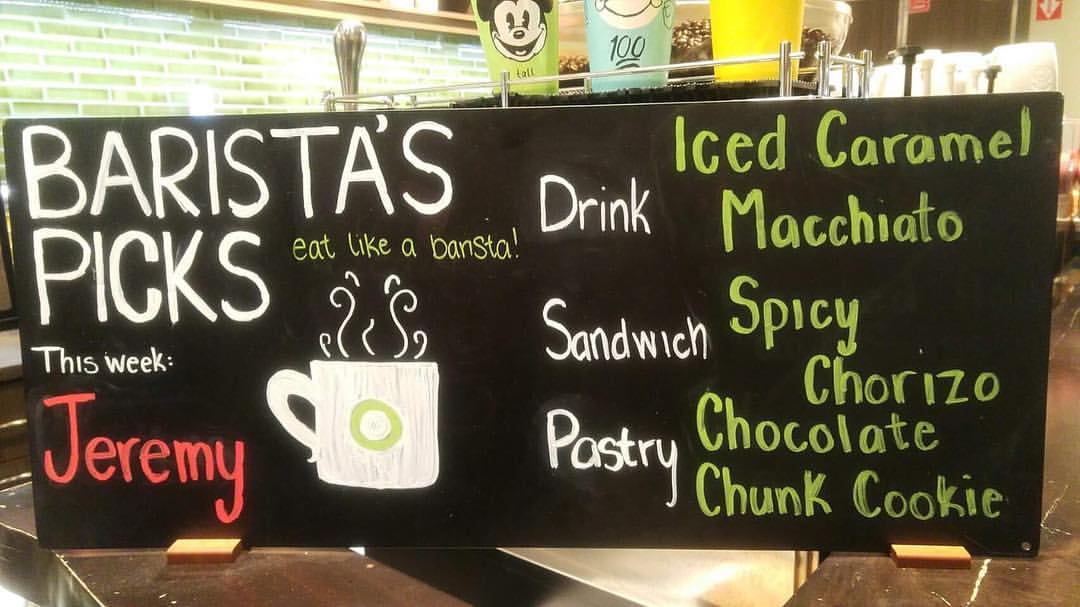 tall
100
BARISTA'S
PICKS
eat like a barista!
This week:
Jeremy
Drink
Iced Caramel
Macchiato
Sandwich
Spicy
Chorizo
Pastry
Chocolate
Chunk Cookie